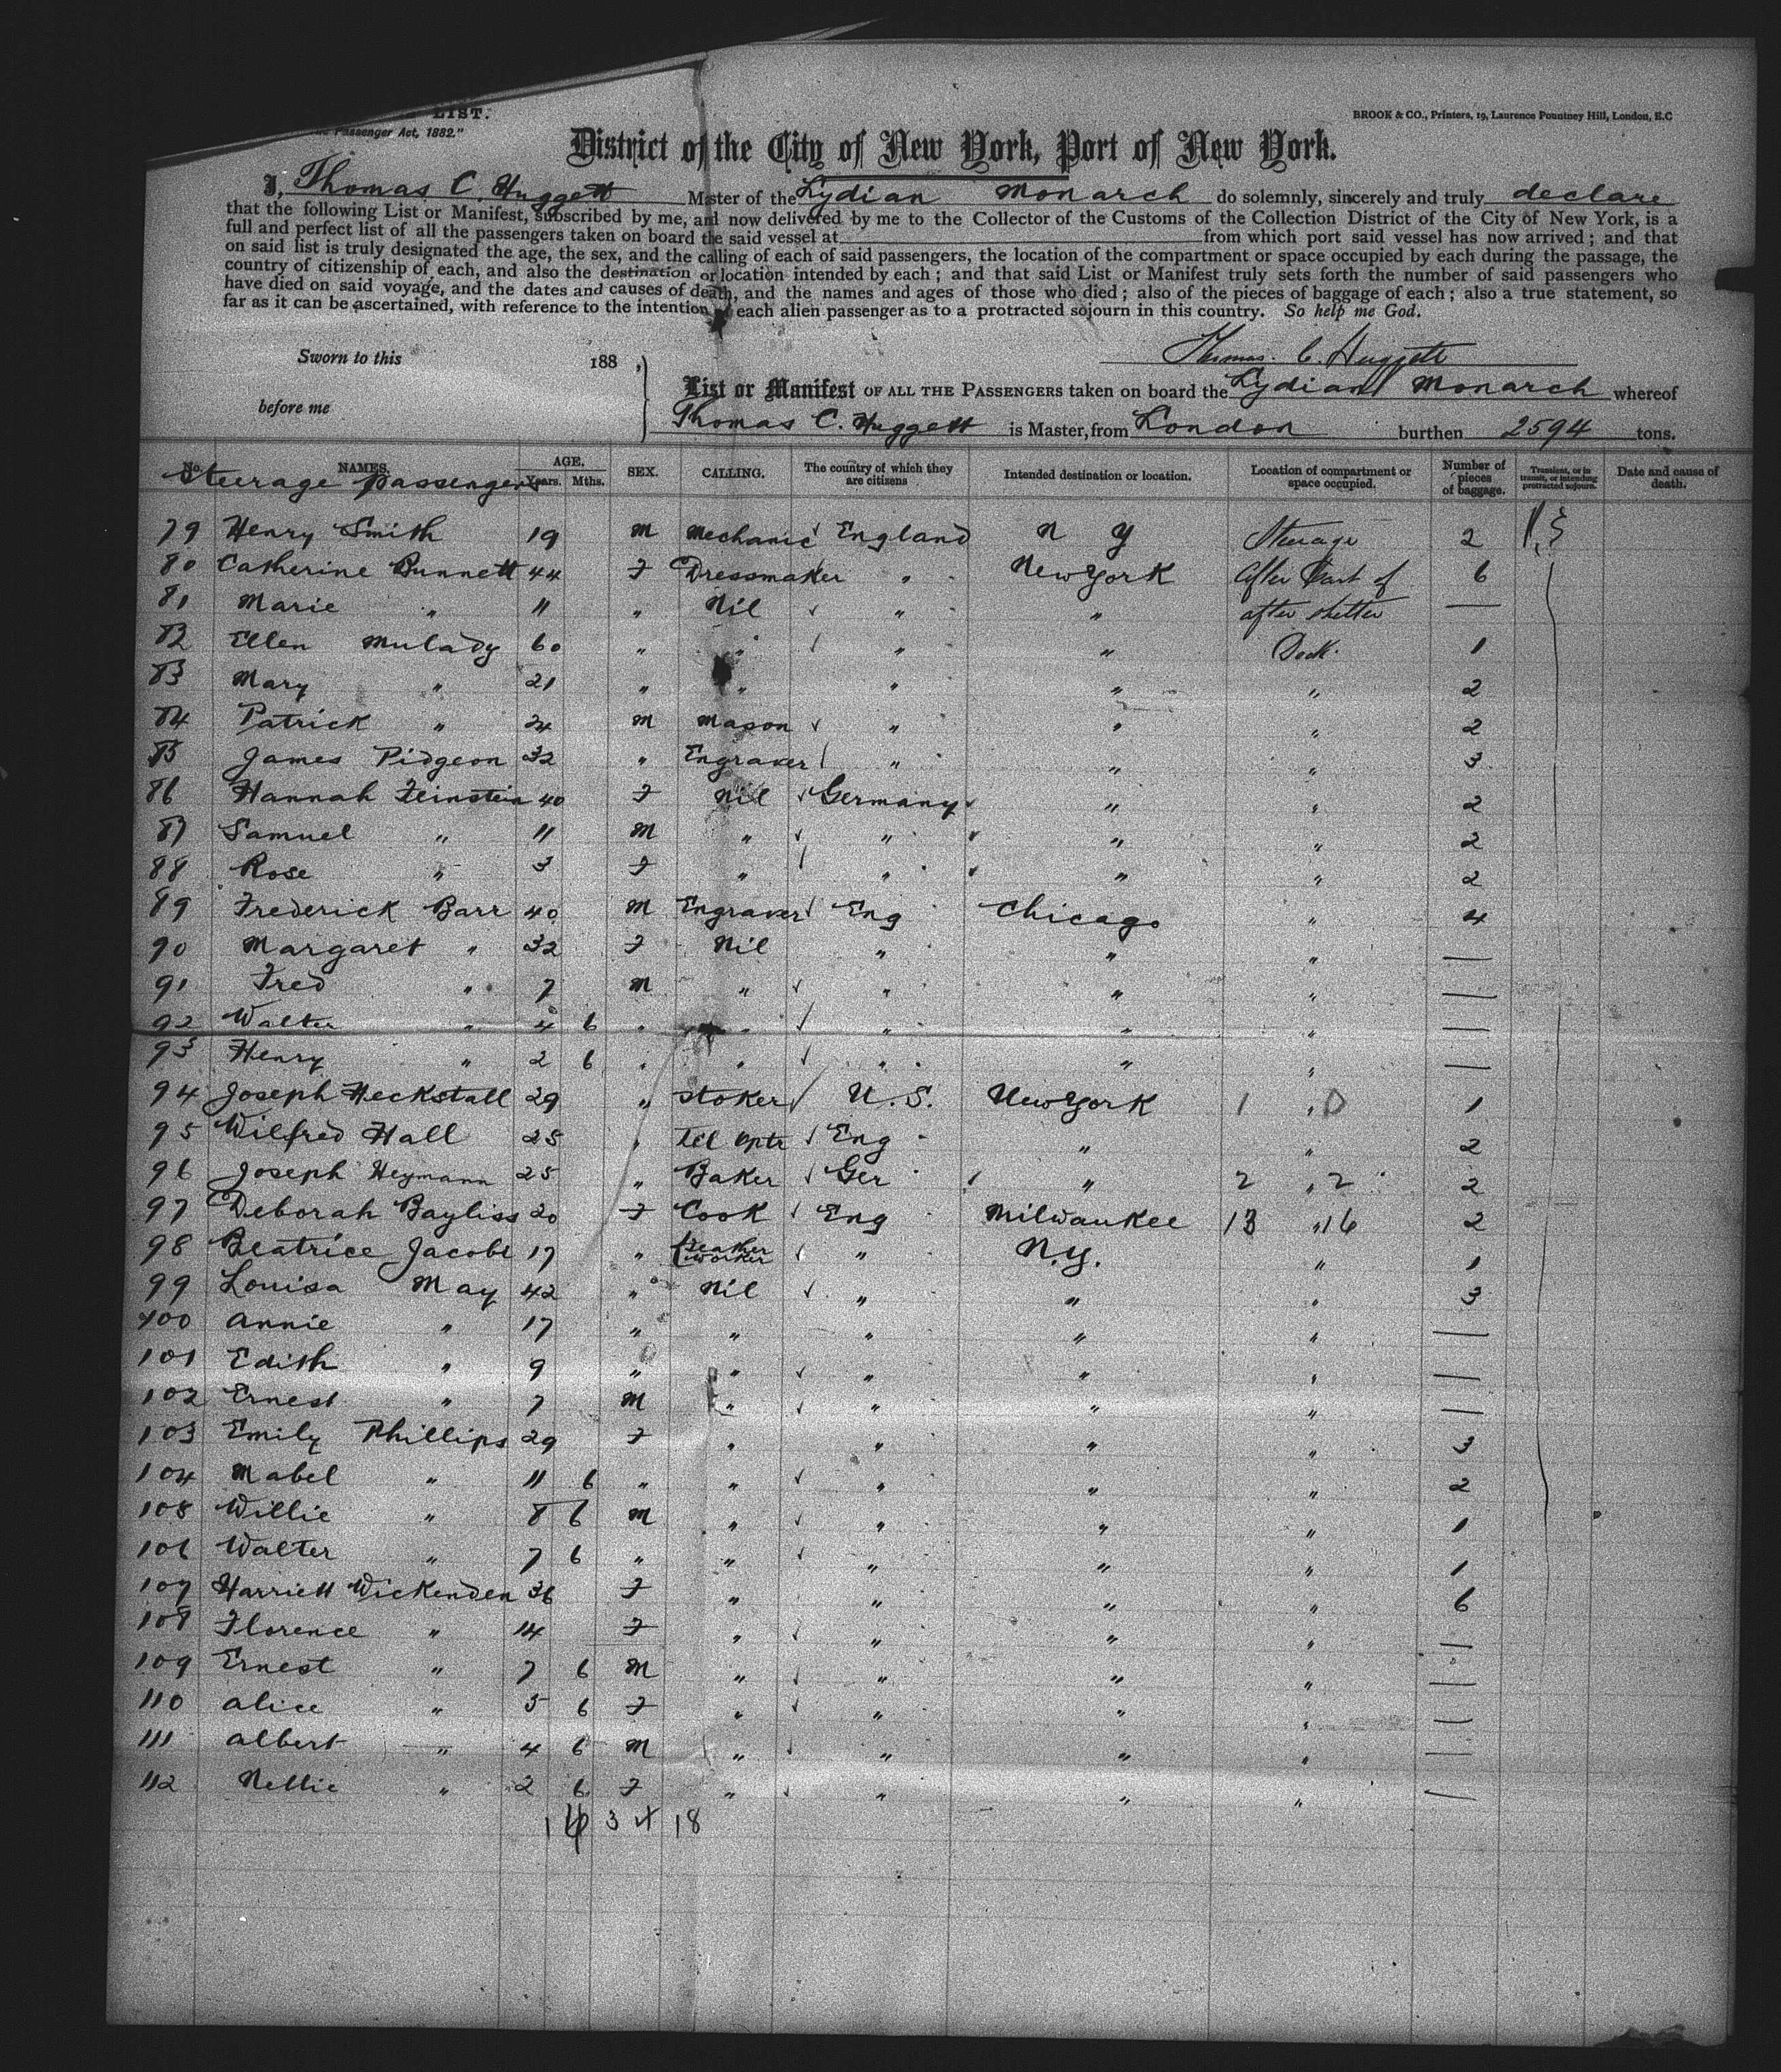 LIST.
Passenger Act, 1882."
BROOK & CO., Printers, 19, Laurence Pountney Hill, London, E.C
District of the City of New York, Port of New York.
I, Thomas C. Huggett Master of the Lydian Monarch do solemnly, sincerely and truly declare
that the following List or Manifest, subscribed by me, and now delivered by me to the Collector of the Customs of the Collection District of the City of New York, is a
full and perfect list of all the passengers taken on board the said vessel at from which port said vessel has now arrived; and that
on said list is truly designated the age, the sex, and the calling of each of said passengers, the location of the compartment or space occupied by each during the passage, the
country of citizenship of each, and also the destination or location intended by each; and that said List or Manifest truly sets forth the number of said passengers who
have died on said voyage, and the dates and causes of death, and the names and ages of those who died; also of the pieces of baggage of each; also a true statement, so
far as it can be ascertained, with reference to the intention of each alien passenger as to a protracted sojourn in this country. So help me God.
Sworn to this 188 ,
Thomas. C. Huggett
before me
List or Manifest OF ALL THE PASSENGERS taken on board the Lydian Monarch whereof
Thomas C. Huggett is Master, from London burthen 2594 tons.
No. NAMES. AGE. Years. Mths. SEX. CALLING. The country of which they are citizens Intended destination or location. Location of compartment or space occupied. Number of pieces of baggage. Transient, or in transit, or intending protracted sojourn. Date and cause of death.
Steerage Passengers
79 Henry Smith 19 M Mechanic England N Y Steerage 2
80 Catherine Bunnett 44 F Dressmaker " New York After Part of 6
81 Marie " 11 " Nil " " after shelter —
82 Ellen Mulady 60 " " " " Deck. 1
83 Mary " 21 " " " " " 2
84 Patrick " 24 M Mason " " " 2
85 James Pidgeon 32 " Engraver " " " 3
86 Hannah Feinstein 40 F Nil Germany " " 2
87 Samuel " 11 M " " " " 2
88 Rose " 3 F " " " " 2
89 Frederick Barr 40 M Engraver Eng Chicago " 4
90 Margaret " 32 F Nil " " " —
91 Fred " 7 M " " " " —
92 Walter " 4 6 " " " " " —
93 Henry " 2 6 " " " " " —
94 Joseph Heckstall 29 " Stoker U.S. New York 1 " 0 1
95 Wilfred Hall 25 " Tel Optr Eng " " 2
96 Joseph Heymann 25 " Baker Ger " 2 " 2 2
97 Deborah Bayliss 20 F Cook Eng Milwaukee 13 " 16 2
98 Beatrice Jacobs 17 " Feather worker " N.Y. " 1
99 Louisa May 42 " Nil " " " 3
100 Annie " 17 " " " " " —
101 Edith " 9 " " " " " —
102 Ernest " 7 M " " " " —
103 Emily Phillips 29 F " " " " 3
104 Mabel " 11 6 " " " " " 2
105 Willie " 8 6 M " " " " 1
106 Walter " 7 6 " " " " " 1
107 Harriett Wickenden 36 F " " " " 6
108 Florence " 14 F " " " " —
109 Ernest " 7 6 M " " " " —
110 Alice " 5 6 F " " " " —
111 Albert " 4 6 M " " " " —
112 Nellie " 2 6 F " " " " —